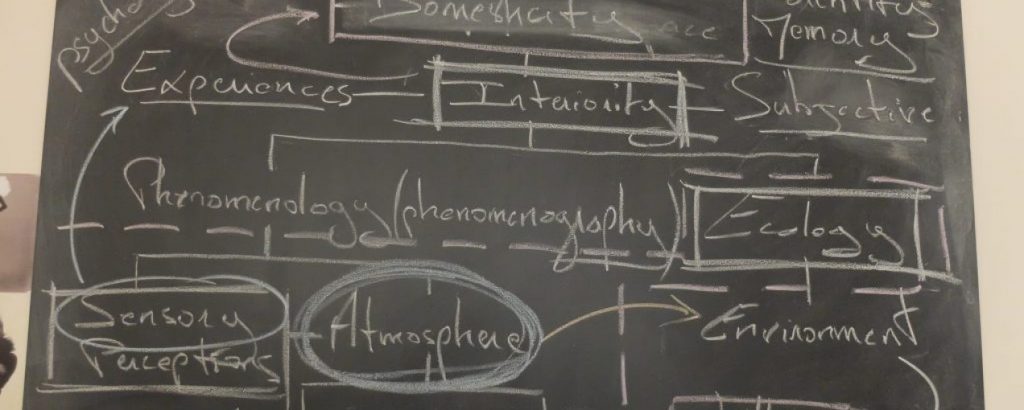 Domesticity
Memory
Experiences Interiority Subjective
Phenomenology (phenomenography) Ecology
Sensory Atmosphere Environment
Perceptions